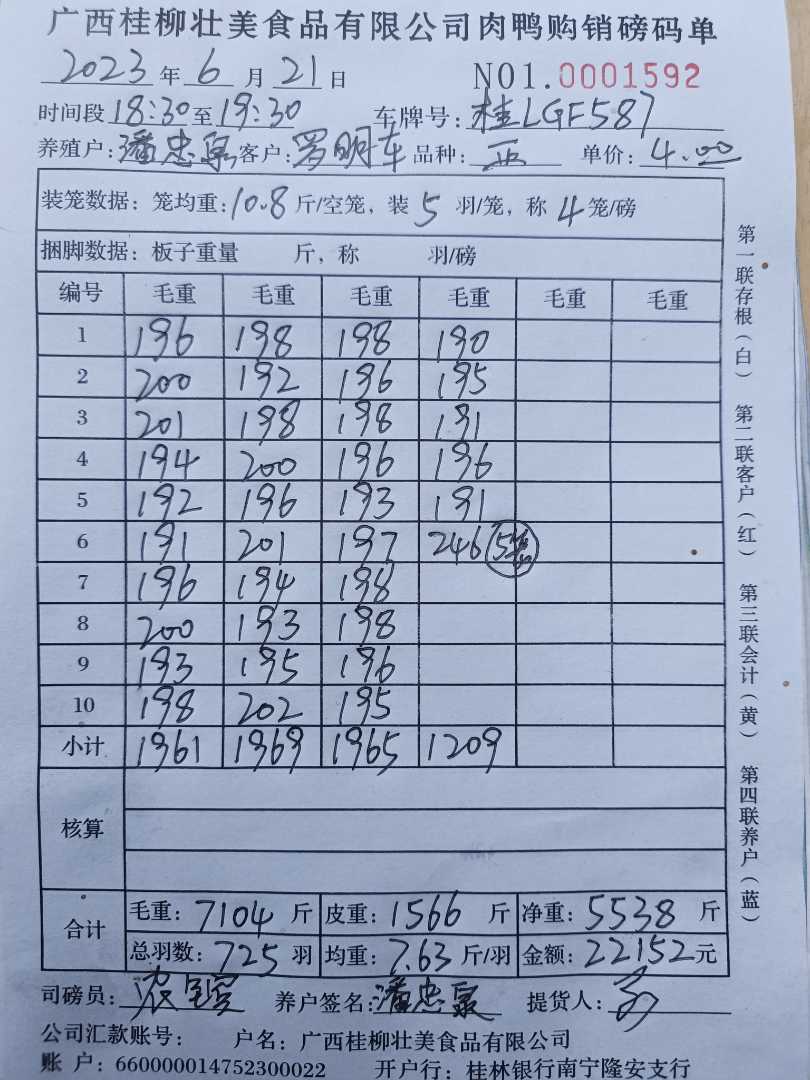 广西桂柳壮美食品有限公司肉鸭购销磅码单
2023年6月21日 NO1.0001592
时间段18:30至19:30 车牌号:桂LGF587
养殖户:潘忠泉 客户:罗明车 品种: 单价:4.00
装笼数据: 笼均重:10.8斤/空笼, 装5羽/笼, 称4笼/磅
捆脚数据: 板子重量 斤, 称 羽/磅
编号 毛重 毛重 毛重 毛重 毛重 毛重
1 196 198 198 190
2 200 192 196 195
3 201 198 198 191
4 194 200 196 196
5 192 196 193 191
6 191 201 197 246 5笼
7 196 194 198
8 200 193 198
9 193 195 196
10 198 202 195
小计 1961 1969 1965 1209
核算
合计 毛重: 7104斤 皮重: 1566斤 净重: 5538斤
总羽数: 725羽 均重: 7.63斤/羽 金额: 22152元
司磅员: 养户签名:潘忠泉 提货人:
公司汇款账号: 户名: 广西桂柳壮美食品有限公司
账 户: 660000014752300022 开户行: 桂林银行南宁隆安支行
第一联存根(白) 第二联客户(红) 第三联会计(黄) 第四联养户(蓝)